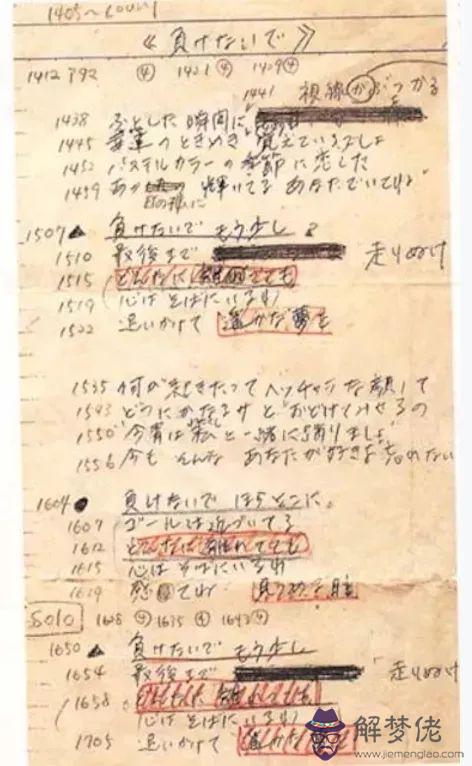 1405〜
《負けないで》
1412 792 ④ 1421 ④ 1429 ④
1441 視線がぶつかる
1438 ふとした瞬間に
1445 幸運のときめき 覚えているでしょ
1452 パステルカラーの季節に恋した
1459 あの 輝いてる あなたでいてね
日の様に
1507 ▲ 負けないで もう少し
1510 最後まで 走りぬけ
1515 どんなに 離れてても
1519 (心はそばにいるわ)
1522 追いかけて 遥かな夢を
1535 何が起きたって ヘッチャラな顔して
1543 どうにかなるサ とおどけてみせるの
1550 "今宵は私と一緒に踊りましょ"
1556 今も そんな あなたが好きよ 忘れない
1604 ● 負けないで ほらそこに。
1607 ゴールは近づいてる
1612 どんなに 離れてても
1615 心は そばにいるわ
1619 感 てね 見つめる瞳
SOLO 1628 ④ 1635 ④ 1642 ④
1650 ▲ 負けないで もう少し
1654 最後まで 走りぬけ
1658 どんなに 離れてても
(心はそばにいるわ)
1705 追いかけて 遥かな夢を
解梦佬
www.jiemenglao.com